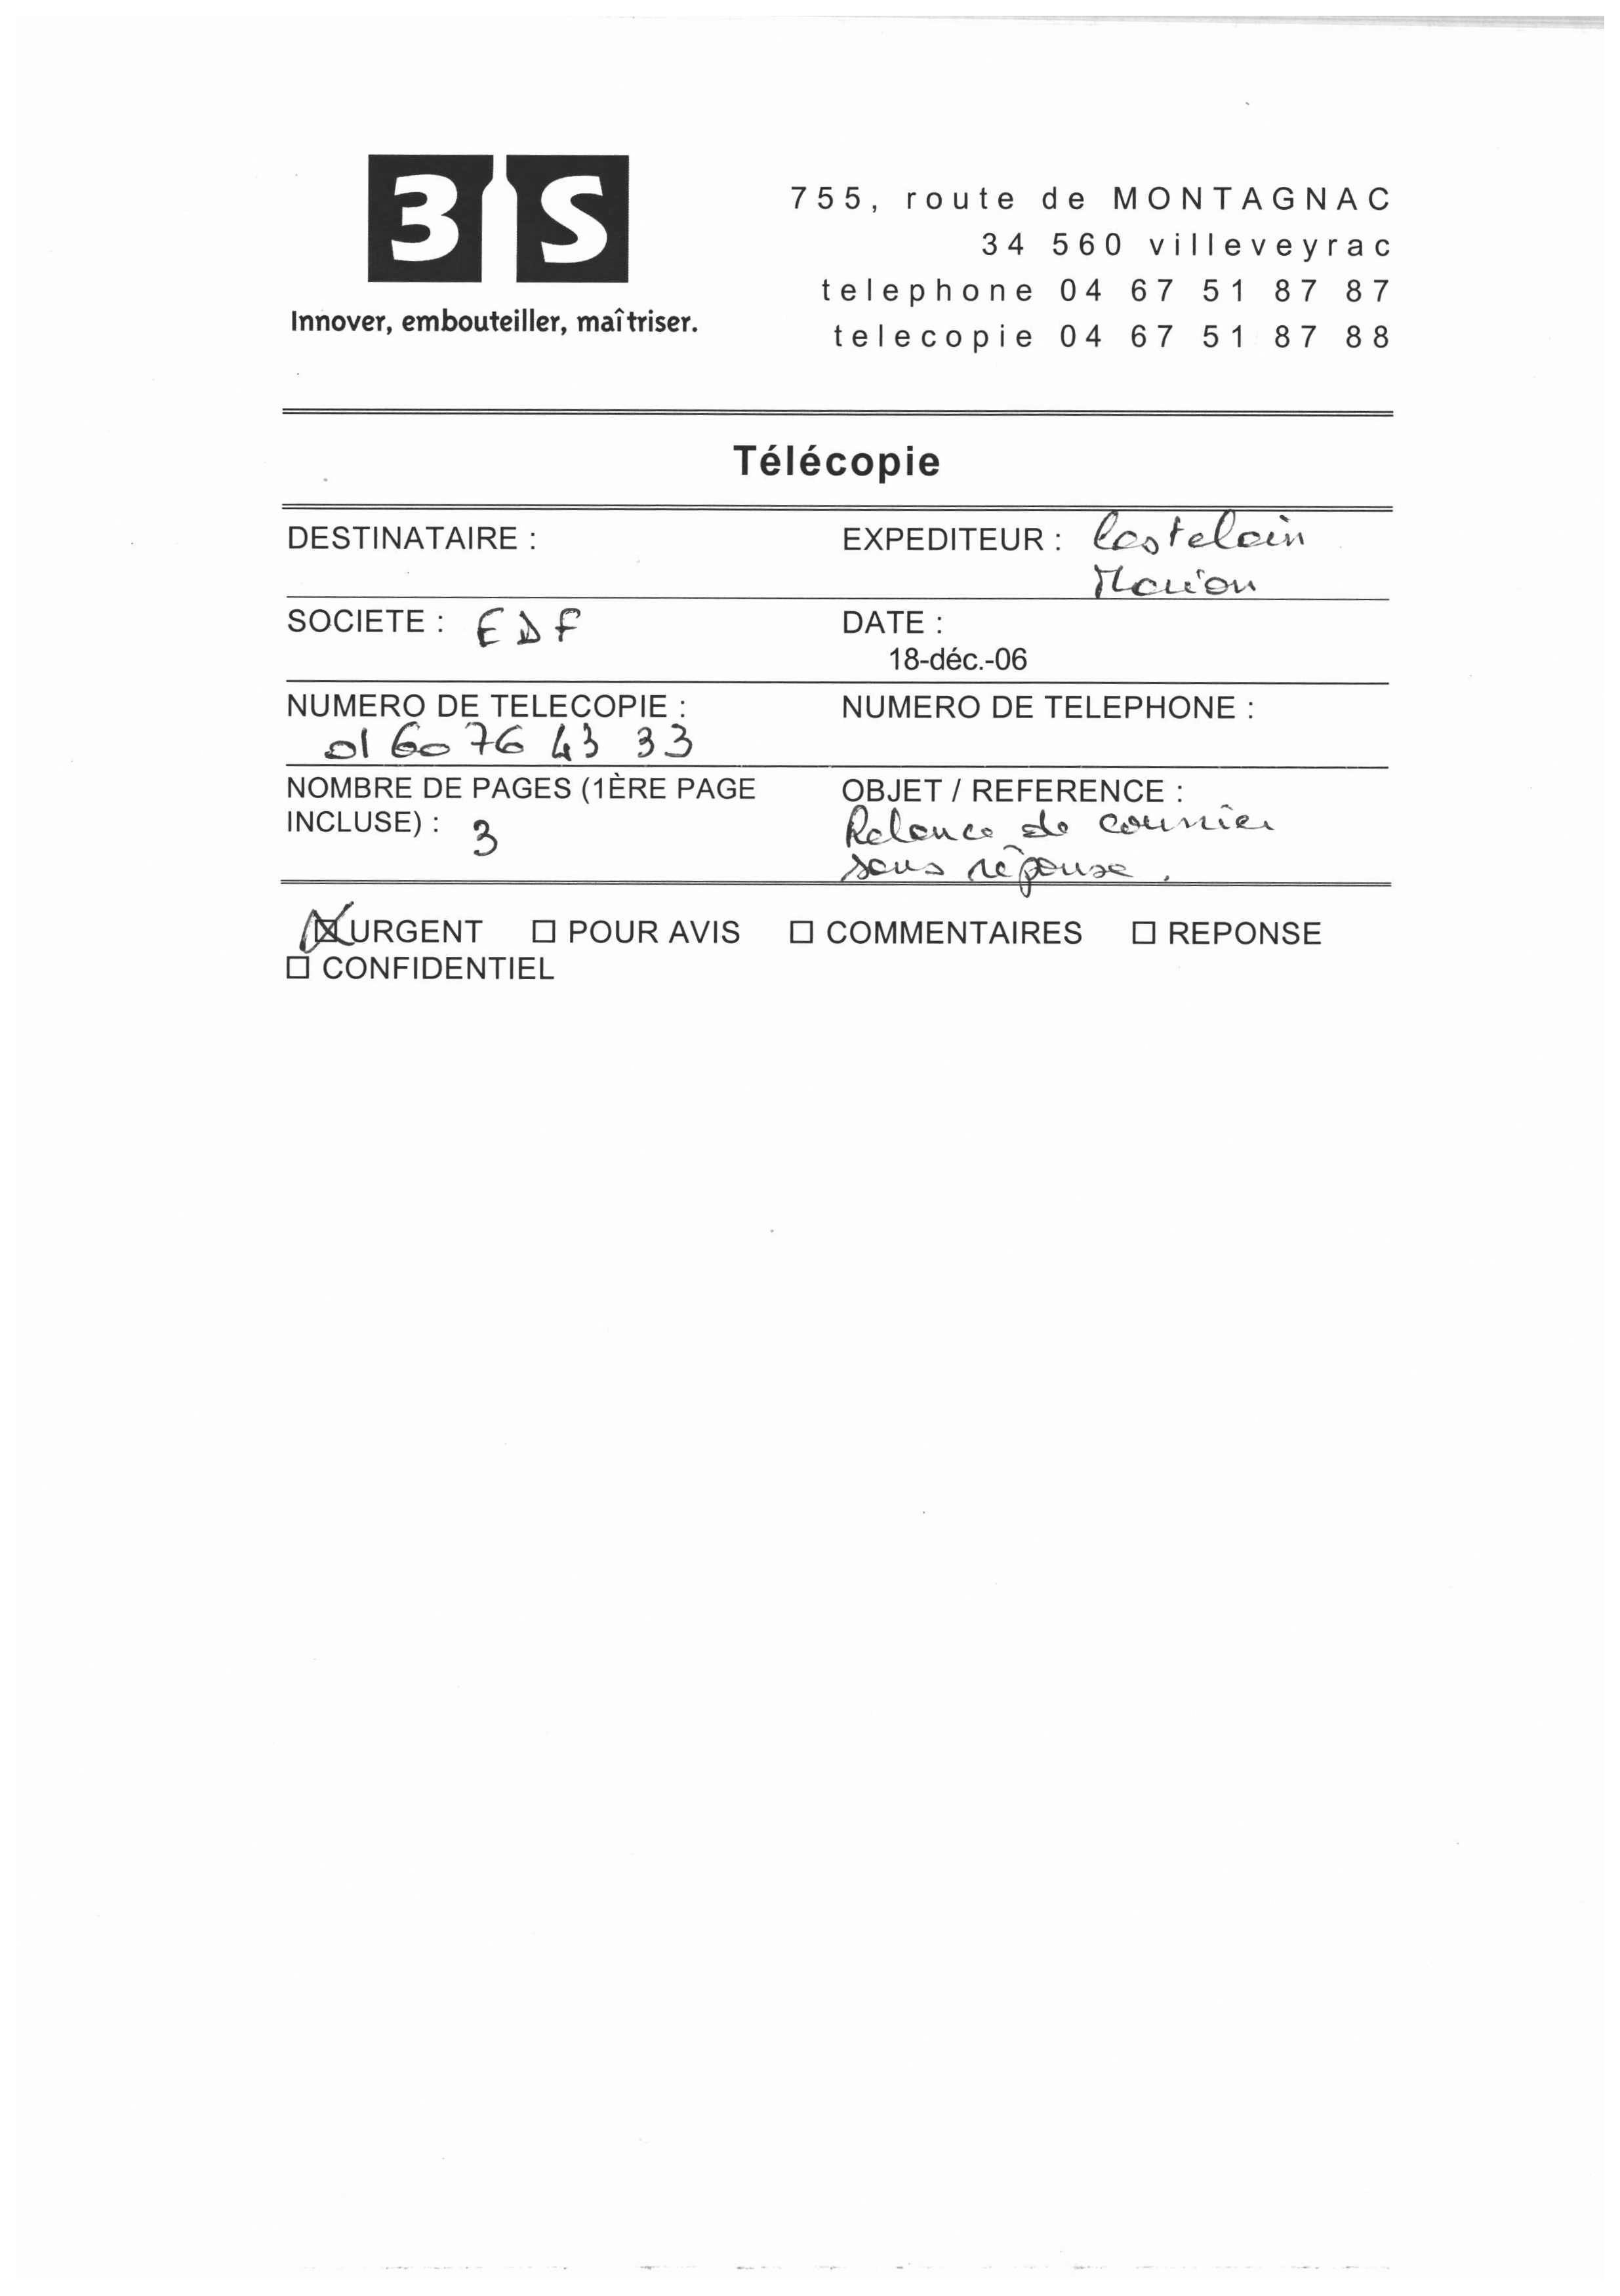 3 S
Innover, embouteiller, maîtriser.
755, route de MONTAGNAC
34 560 villeveyrac
telephone 04 67 51 87 87
telecopie 04 67 51 87 88
Télécopie
DESTINATAIRE :
EXPEDITEUR : Castelain
Marion
SOCIETE : EDF
DATE :
18-déc.-06
NUMERO DE TELECOPIE :
01 60 76 43 33
NUMERO DE TELEPHONE :
NOMBRE DE PAGES (1ÈRE PAGE
INCLUSE) : 3
OBJET / REFERENCE :
Relance de courrier
sans réponse.
URGENT POUR AVIS COMMENTAIRES REPONSE
CONFIDENTIEL